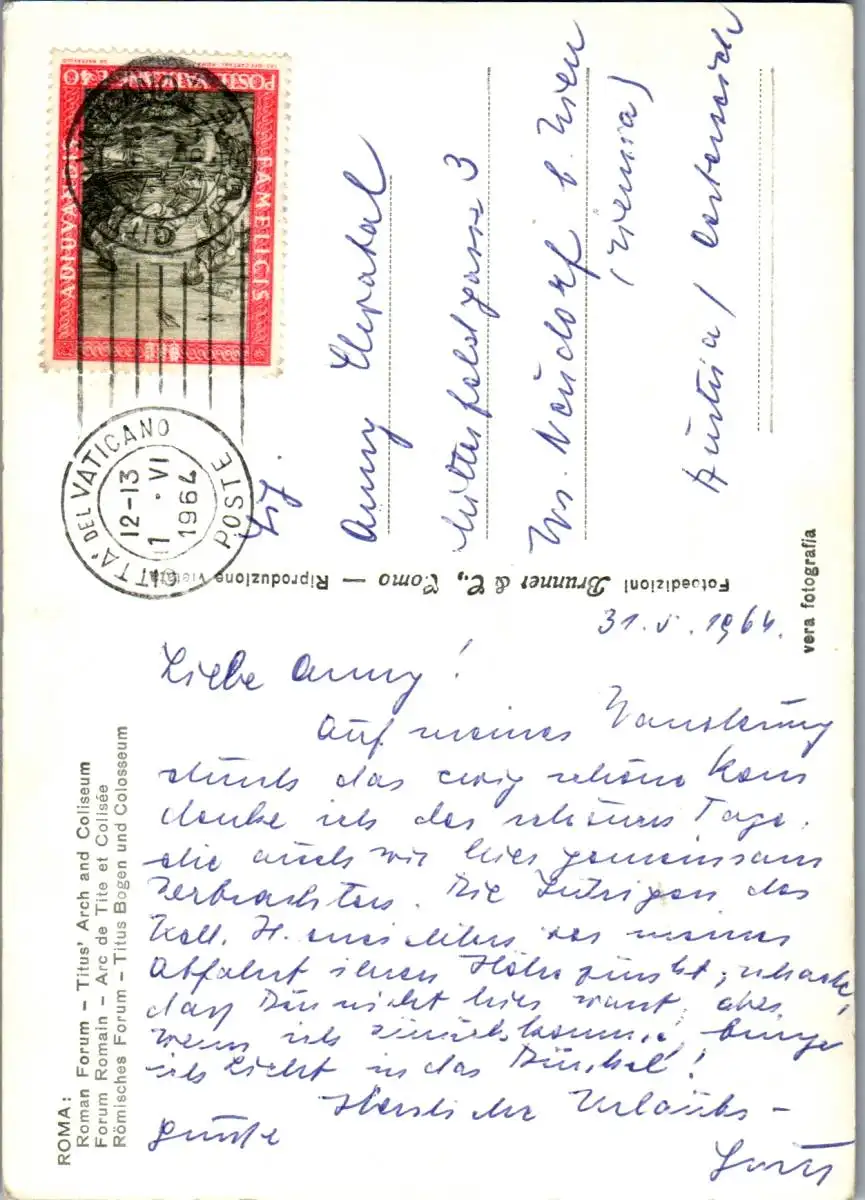 POSTE VATICANE 40
ADIUVANDIS
FAMELICIS
CITTA' DEL VATICANO
12-13
1 · VI
1964
POSTE
Anny
Mitterfeldgasse 3
Wr. Neudorf b. Wien
(Vienna)
Austria / Oesterreich
Fotoedizioni Brunner & C., Como — Riproduzione vietata
vera fotografia
31. V. 1964.
Liebe Anny!
Auf meiner Wanderung
durch das ewig schöne Rom
denke ich der schönen Tage,
die auch wir hier gemeinsam
verbrachten. Die Intrigen des
Koll. H. vor meiner
Abfahrt ihren Höhepunkt; schade,
daß Du nicht hier warst, aber
wenn ich zurückkomme, bringe
ich Licht in das Dunkel!
Herzliche Urlaubs-
grüße
ROMA:
Roman Forum - Titus' Arch and Coliseum
Forum Romain - Arc de Tite et Colisée
Römisches Forum - Titus Bogen und Colosseum